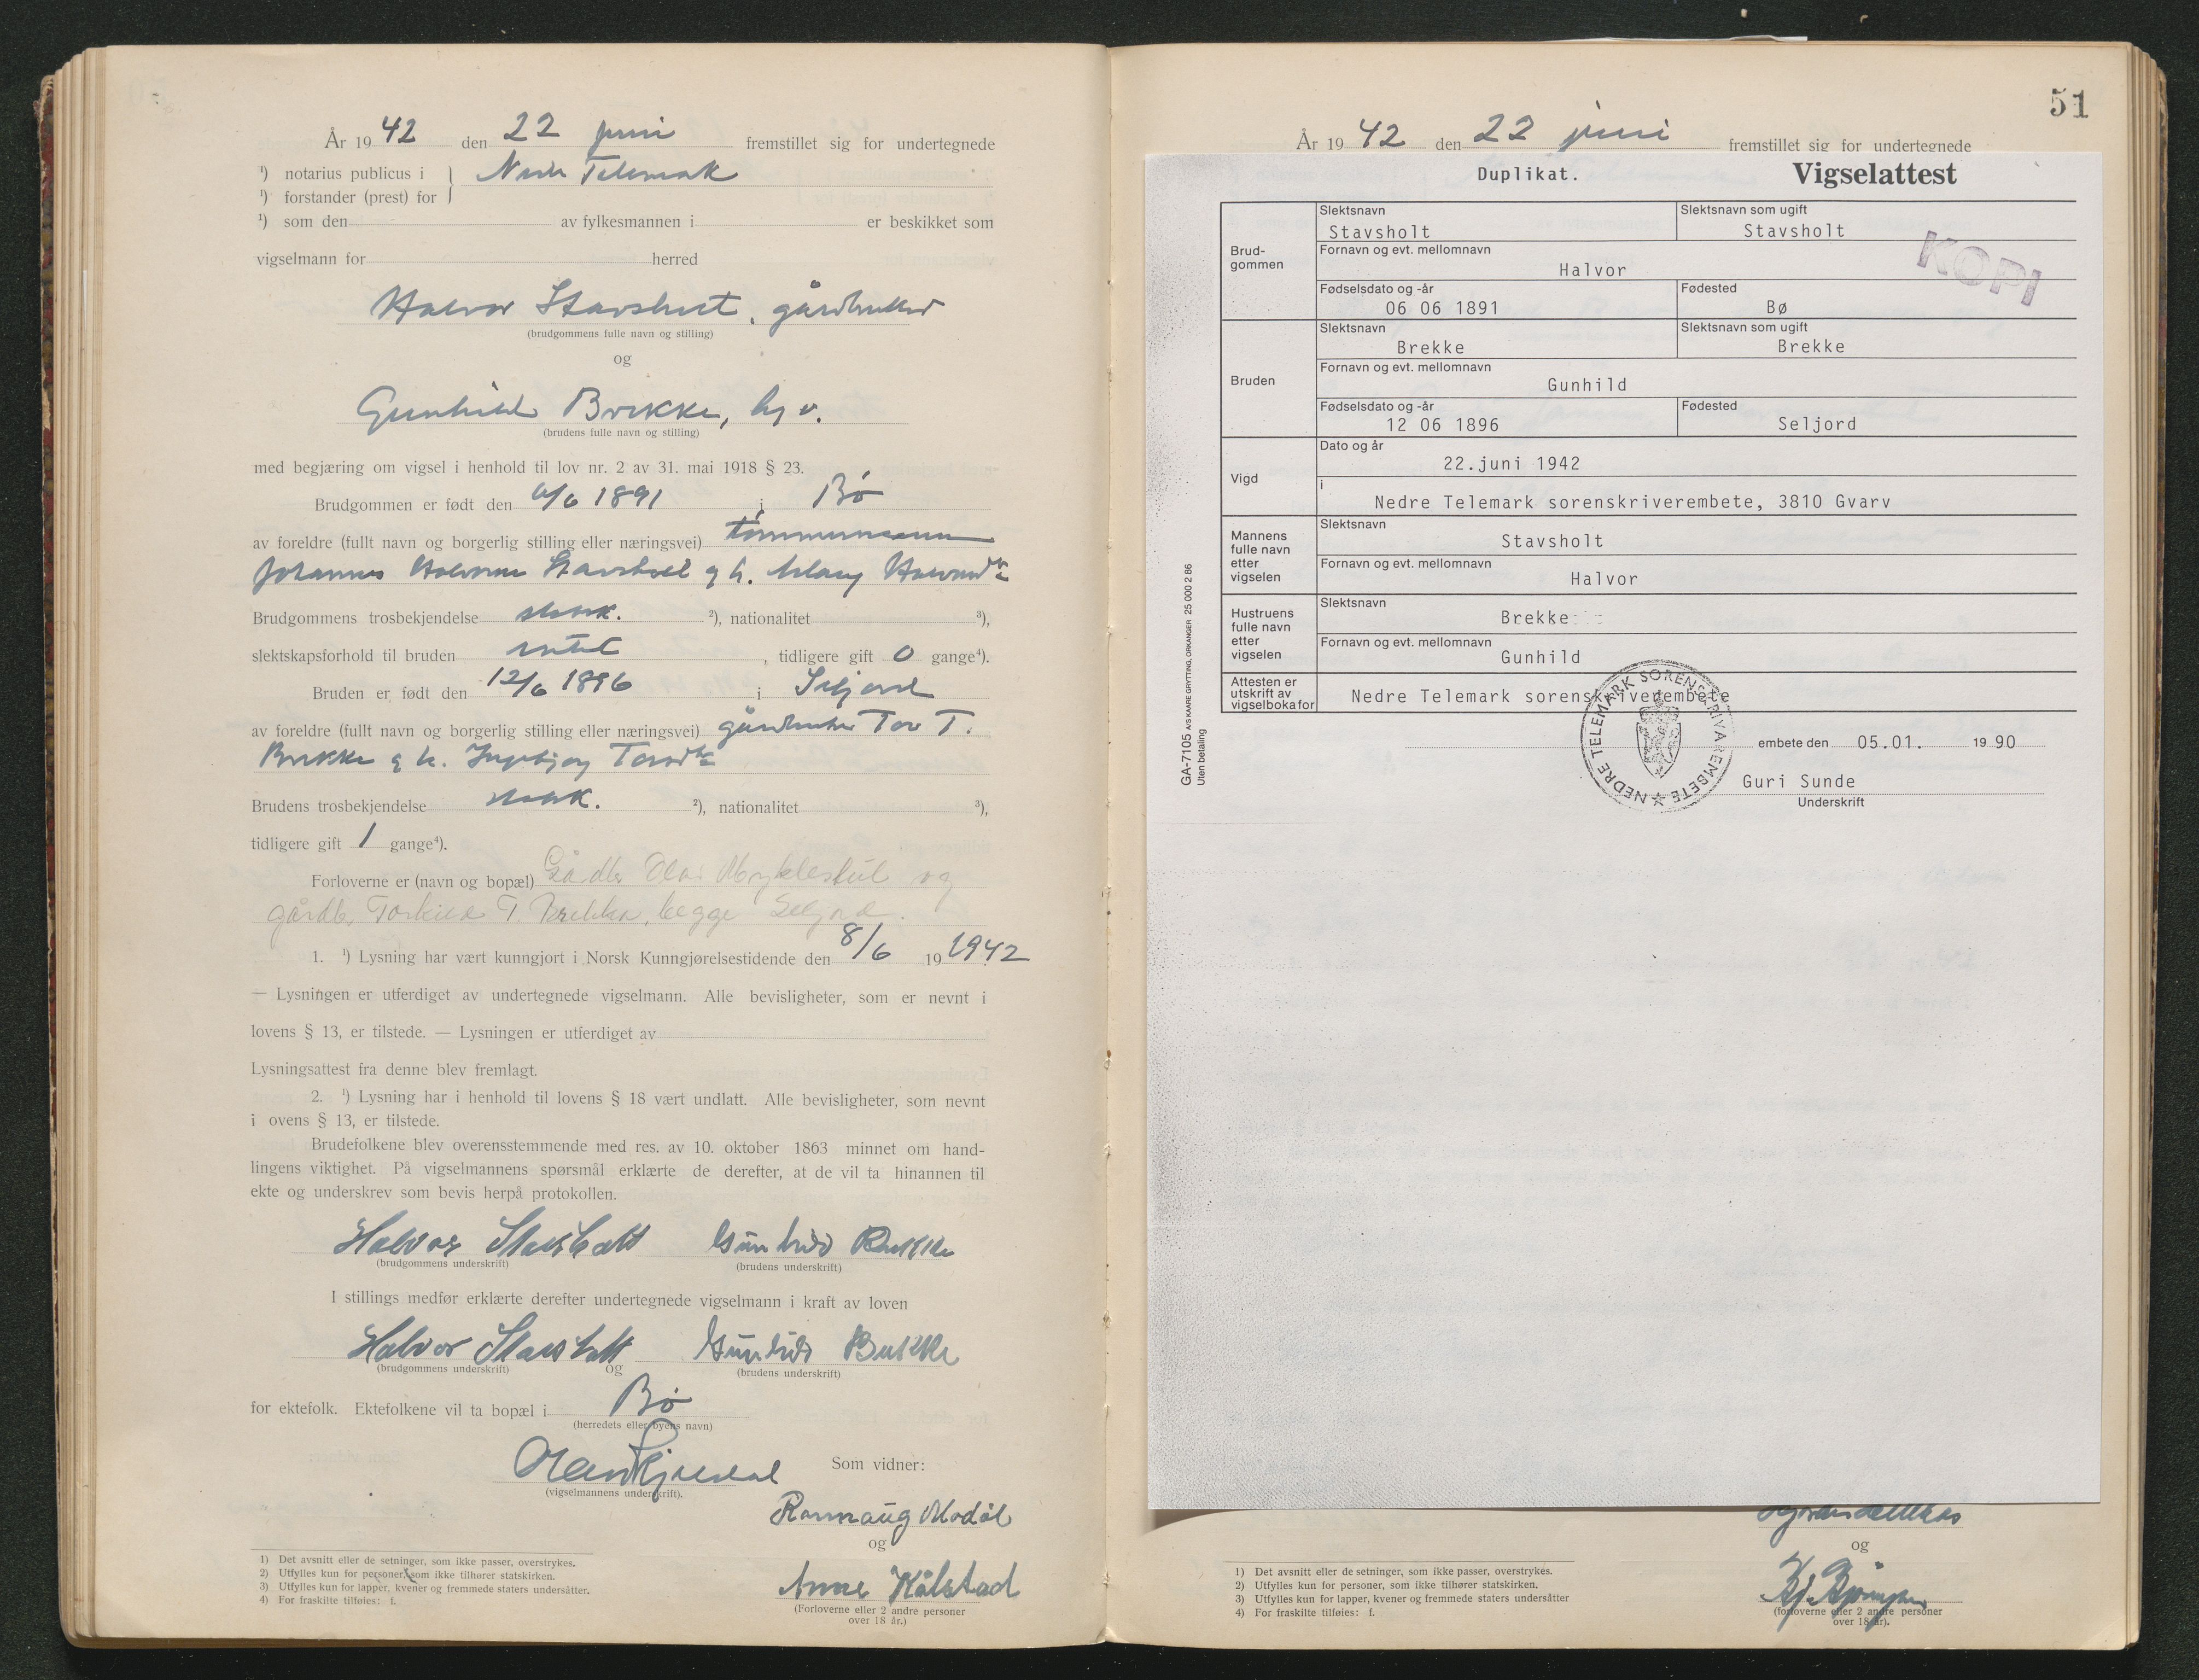 År 19 42 den 22 juni fremstillet sig for undertegnede
¹) notarius publicus i } Nedre Telemark
¹) forstander (prest) for
¹) som den av fylkesmannen i er beskikket som
vigselmann for herred
Halvor Stavsholt, gårdbruker
(brudgommens fulle navn og stilling)
og
Gunhild Brekke,
(brudens fulle navn og stilling)
med begjæring om vigsel i henhold til lov nr. 2 av 31. mai 1918 § 23.
Brudgommen er født den 6/6 1891 i Bø
av foreldre (fullt navn og borgerlig stilling eller næringsvei) tømmermann
Johannes Halvorsen Stavsholt og h.
Brudgommens trosbekjendelse statsk. ²), nationalitet ³),
slektskapsforhold til bruden intet, tidligere gift 0 gange⁴).
Bruden er født den 12/6 1896 i Seljord
av foreldre (fullt navn og borgerlig stilling eller næringsvei) gårdbruker Tor T.
Brekke og h. Ingebjørg
Brudens trosbekjendelse statsk. ²), nationalitet ³),
tidligere gift 1 gange⁴).
Forloverne er (navn og bopæl) Myklestul og
gårdb. Torkild T. Brekke, begge Seljord.
1. ¹) Lysning har vært kunngjort i Norsk Kunngjørelsestidende den 8/6 19 1942
— Lysningen er utferdiget av undertegnede vigselmann. Alle bevisligheter, som er nevnt i
lovens § 13, er tilstede. — Lysningen er utferdiget av
Lysningsattest fra denne blev fremlagt.
2. ¹) Lysning har i henhold til lovens § 18 vært undlatt. Alle bevisligheter, som nevnt
i ovens § 13, er tilstede.
Brudefolkene blev overensstemmende med res. av 10. oktober 1863 minnet om hand-
lingens viktighet. På vigselmannens spørsmål erklærte de derefter, at de vil ta hinannen til
ekte og underskrev som bevis herpå protokollen.
Halvor Stavsholt Gunhild Brekke
(brudgommens underskrift) (brudens underskrift)
I stillings medfør erklærte derefter undertegnede vigselmann i kraft av loven
Halvor Stavsholt og Gunhild Brekke
(brudgommens underskrift) (brudens underskrift)
for ektefolk. Ektefolkene vil ta bopæl i Bø
(herredets eller byens navn)
Som vidner:
(vigselmannens underskrift).
Rannaug Modål
og
Anne Kålstad
(Forloverne eller 2 andre personer
over 18 år.)
1) Det avsnitt eller de setninger, som ikke passer, overstrykes.
2) Utfylles kun for personer, som ikke tilhører statskirken.
3) Utfylles kun for lapper, kvener og fremmede staters undersåtter.
4) For fraskilte tilføies: f.
51
År 19 42 den 22 juni fremstillet sig for undertegnede
Duplikat. Vigselattest
KOPI
Brud-
gommen
Slektsnavn Slektsnavn som ugift
Stavsholt Stavsholt
Fornavn og evt. mellomnavn
Halvor
Fødselsdato og -år Fødested
06 06 1891 Bø
Bruden
Slektsnavn Slektsnavn som ugift
Brekke Brekke
Fornavn og evt. mellomnavn
Gunhild
Fødselsdato og -år Fødested
12 06 1896 Seljord
Vigd
Dato og år
22.juni 1942
i
Nedre Telemark sorenskriverembete, 3810 Gvarv
Mannens
fulle navn
etter
vigselen
Slektsnavn
Stavsholt
Fornavn og evt. mellomnavn
Halvor
Hustruens
fulle navn
etter
vigselen
Slektsnavn
Brekke
Fornavn og evt. mellomnavn
Gunhild
Attesten er
utskrift av
vigselboka for
Nedre Telemark sorenskriverembete
embete den 05.01. 19 90
NEDRE TELEMARK SORENSKRIVAREMBETE
Guri Sunde
Underskrift
GA-7105 A/S KAARE GRYTTING, ORKANGER 25 000 2 86
Uten betaling
og
(forloverne eller 2 andre personer
over 18 år).
1) Det avsnitt eller de setninger, som ikke passer, overstrykes.
2) Utfylles kun for personer, som ikke tilhører statskirken.
3) Utfylles kun for lapper, kvener og fremmede staters undersåtter
4) For fraskilte tilføies: f.